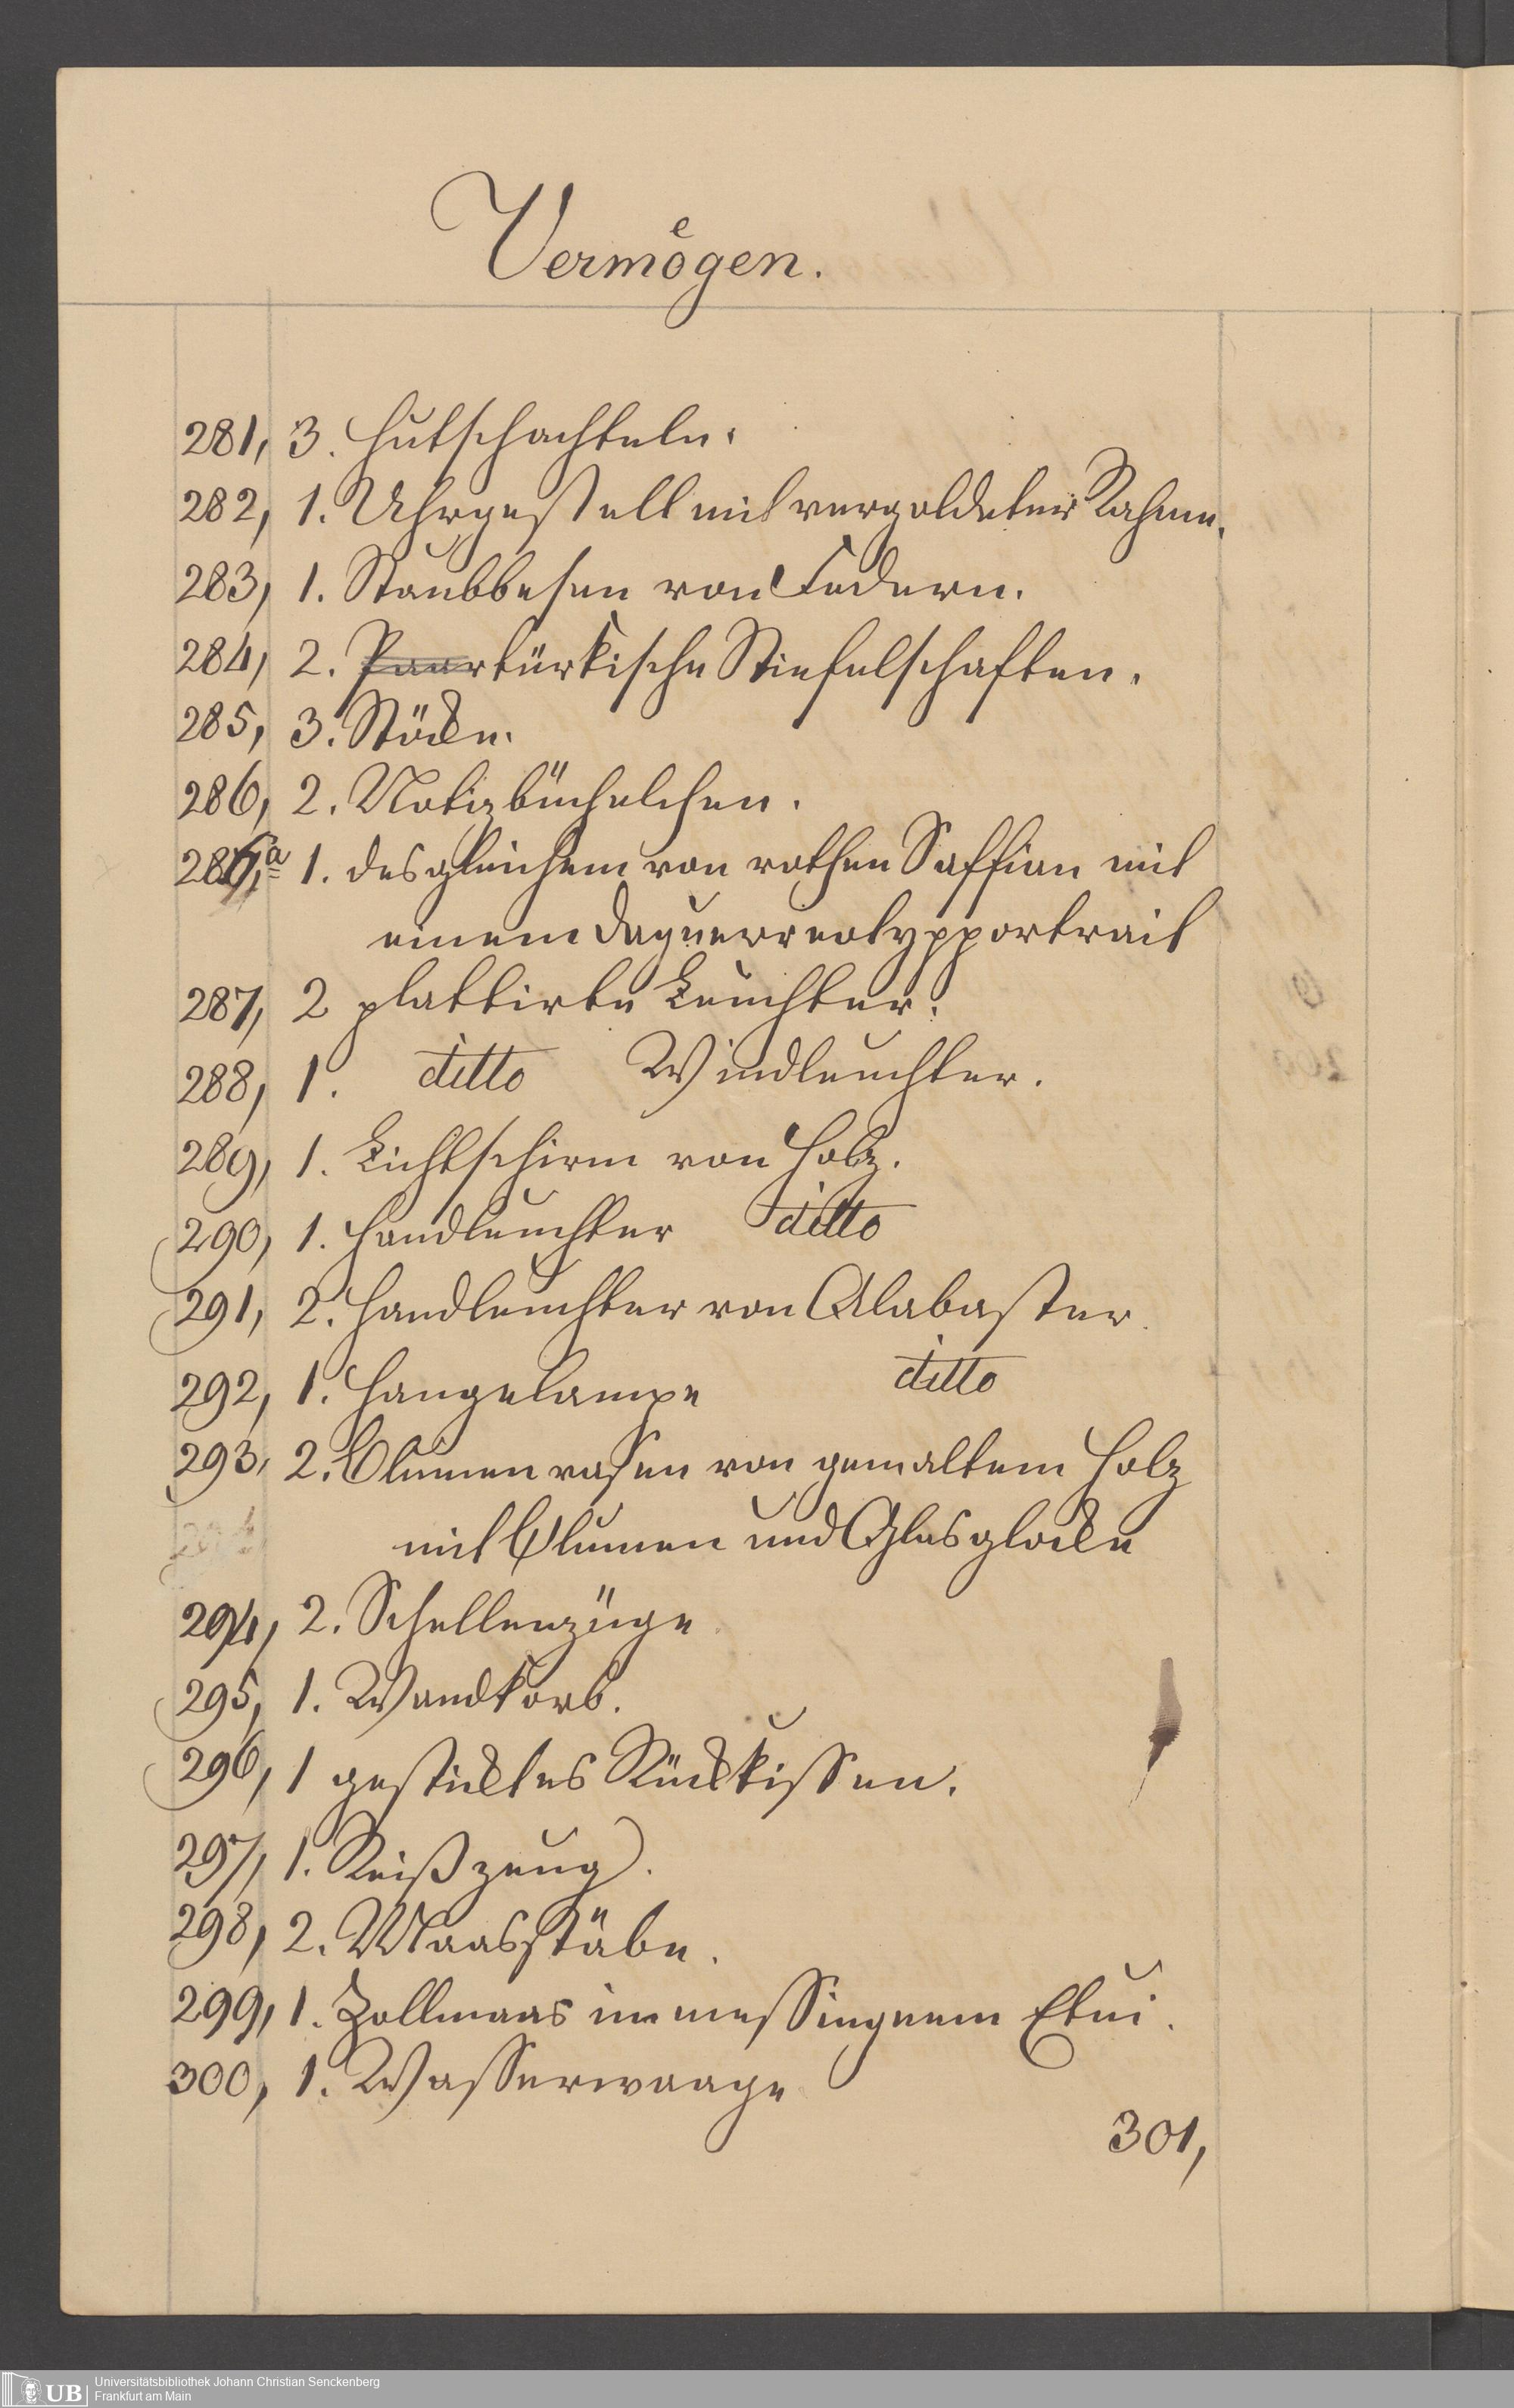 Vermögen.
281, 3. Hutschachteln.
282, 1. Uhrgestell mit vergoldeter Rahme.
283, 1. Staubbesen von Federn.
284, 2. Paar türkische Stiefelschaften.
285, 3. Stöcke.
286, 2. Notizbüchelchen.
286,a 1. desgleichem von rothen Saffian mit
einem Daguerreotypportrait
287, 2 plattirte Leuchter.
288, 1. ditto Windleuchter.
289, 1. Lichtschirm von Holz.
290, 1. Handleuchter ditto
291, 2. Handleuchter von Alabaster.
292, 1. Hangelampe ditto
293, 2. Blumenvasen von gemaltem Holz
mit Blumen und Glasglocke
294, 2. Schellenzüge.
295, 1. Wandkorb.
296, 1 gesticktes Rückkissen.
297, 1. Reißzeug.
298, 2. Maasstäbe.
299, 1. Zollmaas in messingnem Etui.
300, 1. Wasserwaage
301,
UB Universitätsbibliothek Johann Christian Senckenberg
Frankfurt am Main